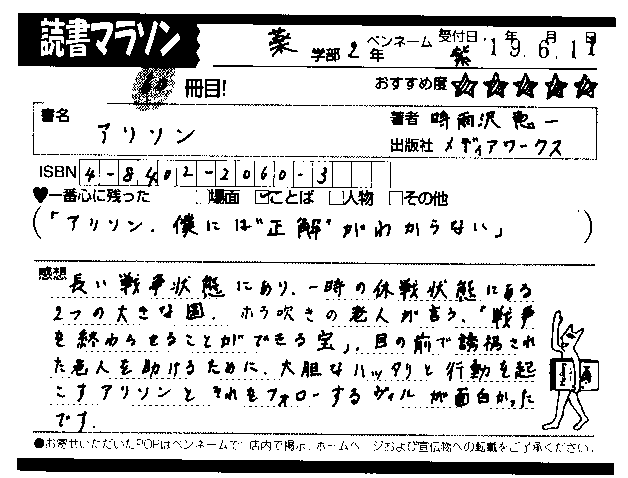 読書マラソン
薬 学部 2 年 ペンネーム 紫 受付日 '19.年 6.月 11 日
冊目! おすすめ度 ☆☆☆☆☆
書名 アリソン
著者 時雨沢 恵一
出版社 メディアワークス
ISBN 4-8402-2060-3
♥一番心に残った □場面 ☑ことば □人物 □その他
(「アリソン、僕には"正解"がわからない」)
感想 長い戦争状態にあり、一時の休戦状態にある
2つの大きな国。ホラ吹きの老人が言う、「戦争
を終わらせることができる宝」。目の前で誘拐され
た老人を助けるために、大胆なハッタリと行動を起
こすアリソンとそれをフォローするヴィルが面白かった
です。
●お寄せいただいたPOPはペンネームで店内で掲示、ホームページおよび宣伝物への転載をご了承ください。